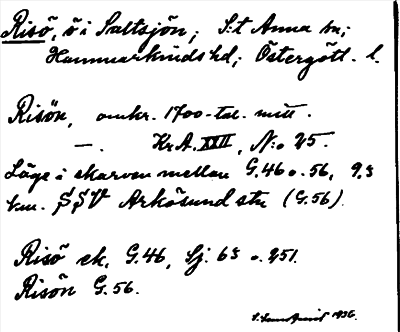 Risö, ö i Saltsjön; S:t Anna sn;
Hammarkinds hd; Östergötl. l.
Risön, omkr. 1700-tal. mitt.
—. Kr.A. XXII, N:o 25.
Läge i skarven mellan G.46 o. 56, 9,3
km. SSV Arkösund stn (G.56).
Risö ek. G.46, Sj. 63 o. 251.
Risön G.56.
1936.